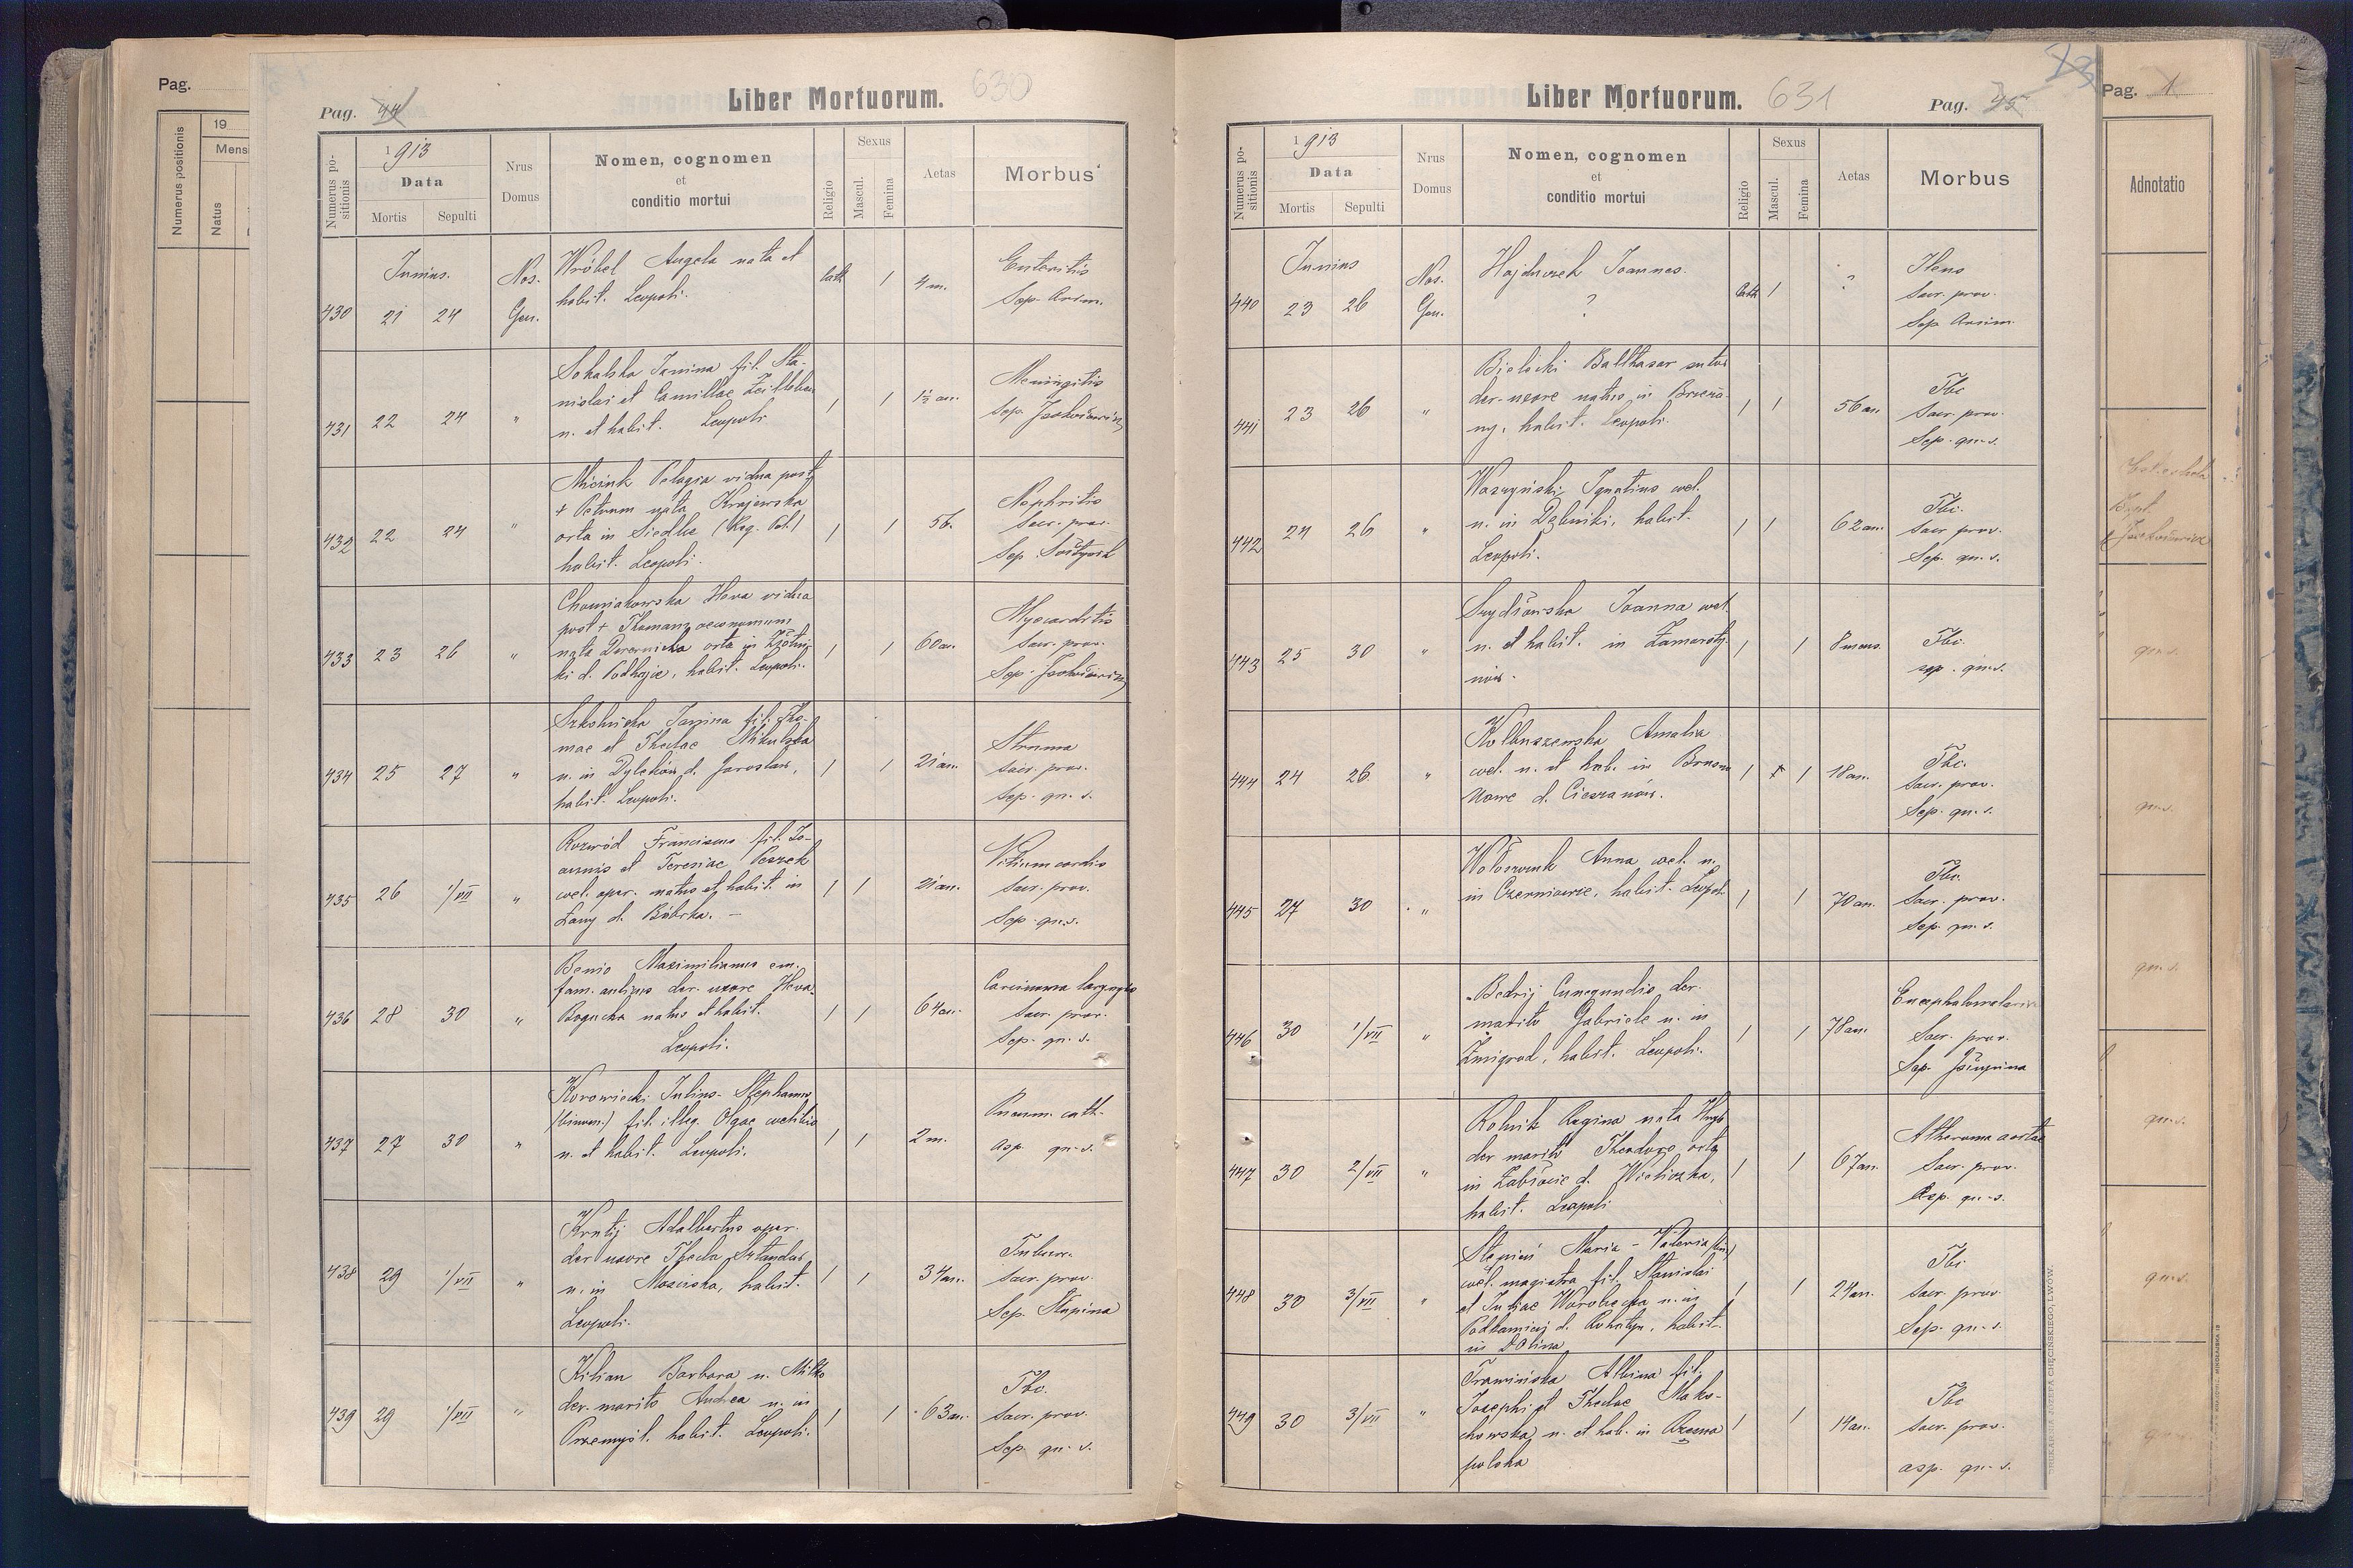 Pag.
19
Mens
Numerus positionis
Natus
Pag. 44
Liber Mortuorum. 630
Numerus positionis
1913
Data
Mortis Sepulti
Nrus
Domus
Nomen, cognomen
et
conditio mortui
Religio
Sexus
Mascul.
Femina
Aetas
Morbus
Junius.
430 21 24 Nos. Gen.
Wróbel Angela nata et
habit. Leopoli.
cath 1 4 m.
Enteritis
Sep. Anim.
431 22 24 "
Sokalska Janina fil. Sta-
nislai et Camillae
n. et habit. Leopoli
1 1 1½ an.
Meningitis
Sep.
432 22 24 "
Pelagia vidua post
+ Petrum nata Krajewska
orta in Siedlce (Reg. Pol.)
habit. Leopoli.
1 1 56.
Nephritis
Sacr. prov.
Sep.
433 23 26 "
Chomiakowska Heva vidua
post + Thomam oeconomum
nata orta in
ki d. Podhajce, habit. Leopoli.
1 1 60 an.
Myocarditis
Sacr. prov.
Sep.
434 25 27 "
Szkolnicka Janina fil. Tho-
mae et Theclae Mikulska
n. in d. Jaroslau,
habit. Leopoli.
1 1 21 an.
Struma
Sacr. prov.
Sep. qu. s.
435 26 1/VII "
Rozwód Franciscus fil. Jo-
annis et Teresiae Peszek
cel. oper. natus et habit. in
Łany d. Bóbrka. –
1 1 21 an.
Vitium cordis
Sacr. prov.
Sep. qu. s.
436 28 30 "
Benio Maximilianus em.
fam. der. uxore Heva
Bogucka natus et habit.
Leopoli.
1 1 64 an.
Carcinoma laryngis
Sacr. prov.
Sep. qu. s.
437 27 30 "
Korowiecki Julius-Stephanus
(binom.) fil. illeg. Olgae coelibis
n. et habit. Leopoli.
1 1 2 m.
Pneum. cath.
asp. qu. s.
438 29 1/VII "
Krutij Adalbertus oper.
der uxore Thecla
n. in Mosciska, habit.
Leopoli.
1 1 34 an.
Tuberc.
Sacr. prov.
Sep. Stupina
439 29 1/VII "
Kilian Barbara n. Mitko
der. marito Andrea n. in
Przemyśl. habit. Leopoli.
1 1 63 an.
Tbc.
Sacr. prov.
Sep. qu. s.
Liber Mortuorum. 631
Pag. 45
Numerus positionis
1913
Data
Mortis Sepulti
Nrus
Domus
Nomen, cognomen
et
conditio mortui
Religio
Sexus
Mascul.
Femina
Aetas
Morbus
Junius
440 23 26 Nos. Gen.
Hajduczek Joannes.
?
Cath 1 ?
Ileus
Sacr. prov.
Sep Anim.
441 23 26 "
Bielecki Balthasar sutor
der. uxore natus in Brzeża-
ny, habit. Leopoli.
1 1 56 an
Tbc
Sacr. prov.
Sep. qu. s.
442 24 26 "
Waszyński Ignatius cel.
n. in Dębniki, habit.
Leopoli.
1 1 62 an.
Tbc.
Sacr prov.
Sep. qu. s.
443 25 30 "
Joanna cel.
n. et habit. in Zamarsty-
nów.
1 1 8 mens.
Tbc.
sep. qu. s.
444 24 26 "
Kolbuszewska Amalia
cel. n. et hab. in Brusno
Nowe d. Cieszanów.
1 1 18 an.
Tbc.
Sacr. prov.
Sep. qu. s.
445 27 30 "
Wołoszczuk Anna cel. n.
in Czerniowce, habit. Leopoli
1 1 70 an.
Tbc.
Sacr. prov.
Sep. qu. s.
446 30 1/VII "
Bedrij Cunegundis der.
marito Gabriele n. in
Żmigrod, habit. Leopoli.
1 1 78 an.
Sacr. prov.
Sep.
447 30 2/VII "
Rolnik Regina nata
der marito Theodoro orta
in d. Wieliczka,
habit. Leopoli
1 1 67 an.
Atheroma aortae
Sacr. prov.
Asp. qu. s.
448 30 3/VII "
Maria-Valeria (bin.)
cel. magistra fil. Stanislai
et Juliae Worobecka n. in
d. Rohatyn, habit.
in Dolina
1 1 24 an.
Tbc
Sacr. prov
Sep. qu. s.
449 30 3/VII "
Albina fil.
Josephi et Theclae Mako-
chowska n. et hab. in
polska
1 1 14 an.
Tbc
Sacr. prov.
asp. qu. s.
DRUKARNIA JÓZEFA CHĘCIŃSKIEGO, LWÓW.
Pag. 1
Adnotatio
qu. s.
qu. s.
qu. s.
qu. s.
qu. s.